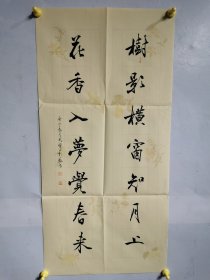 樹影橫窗知月上
花香入夢覺春来